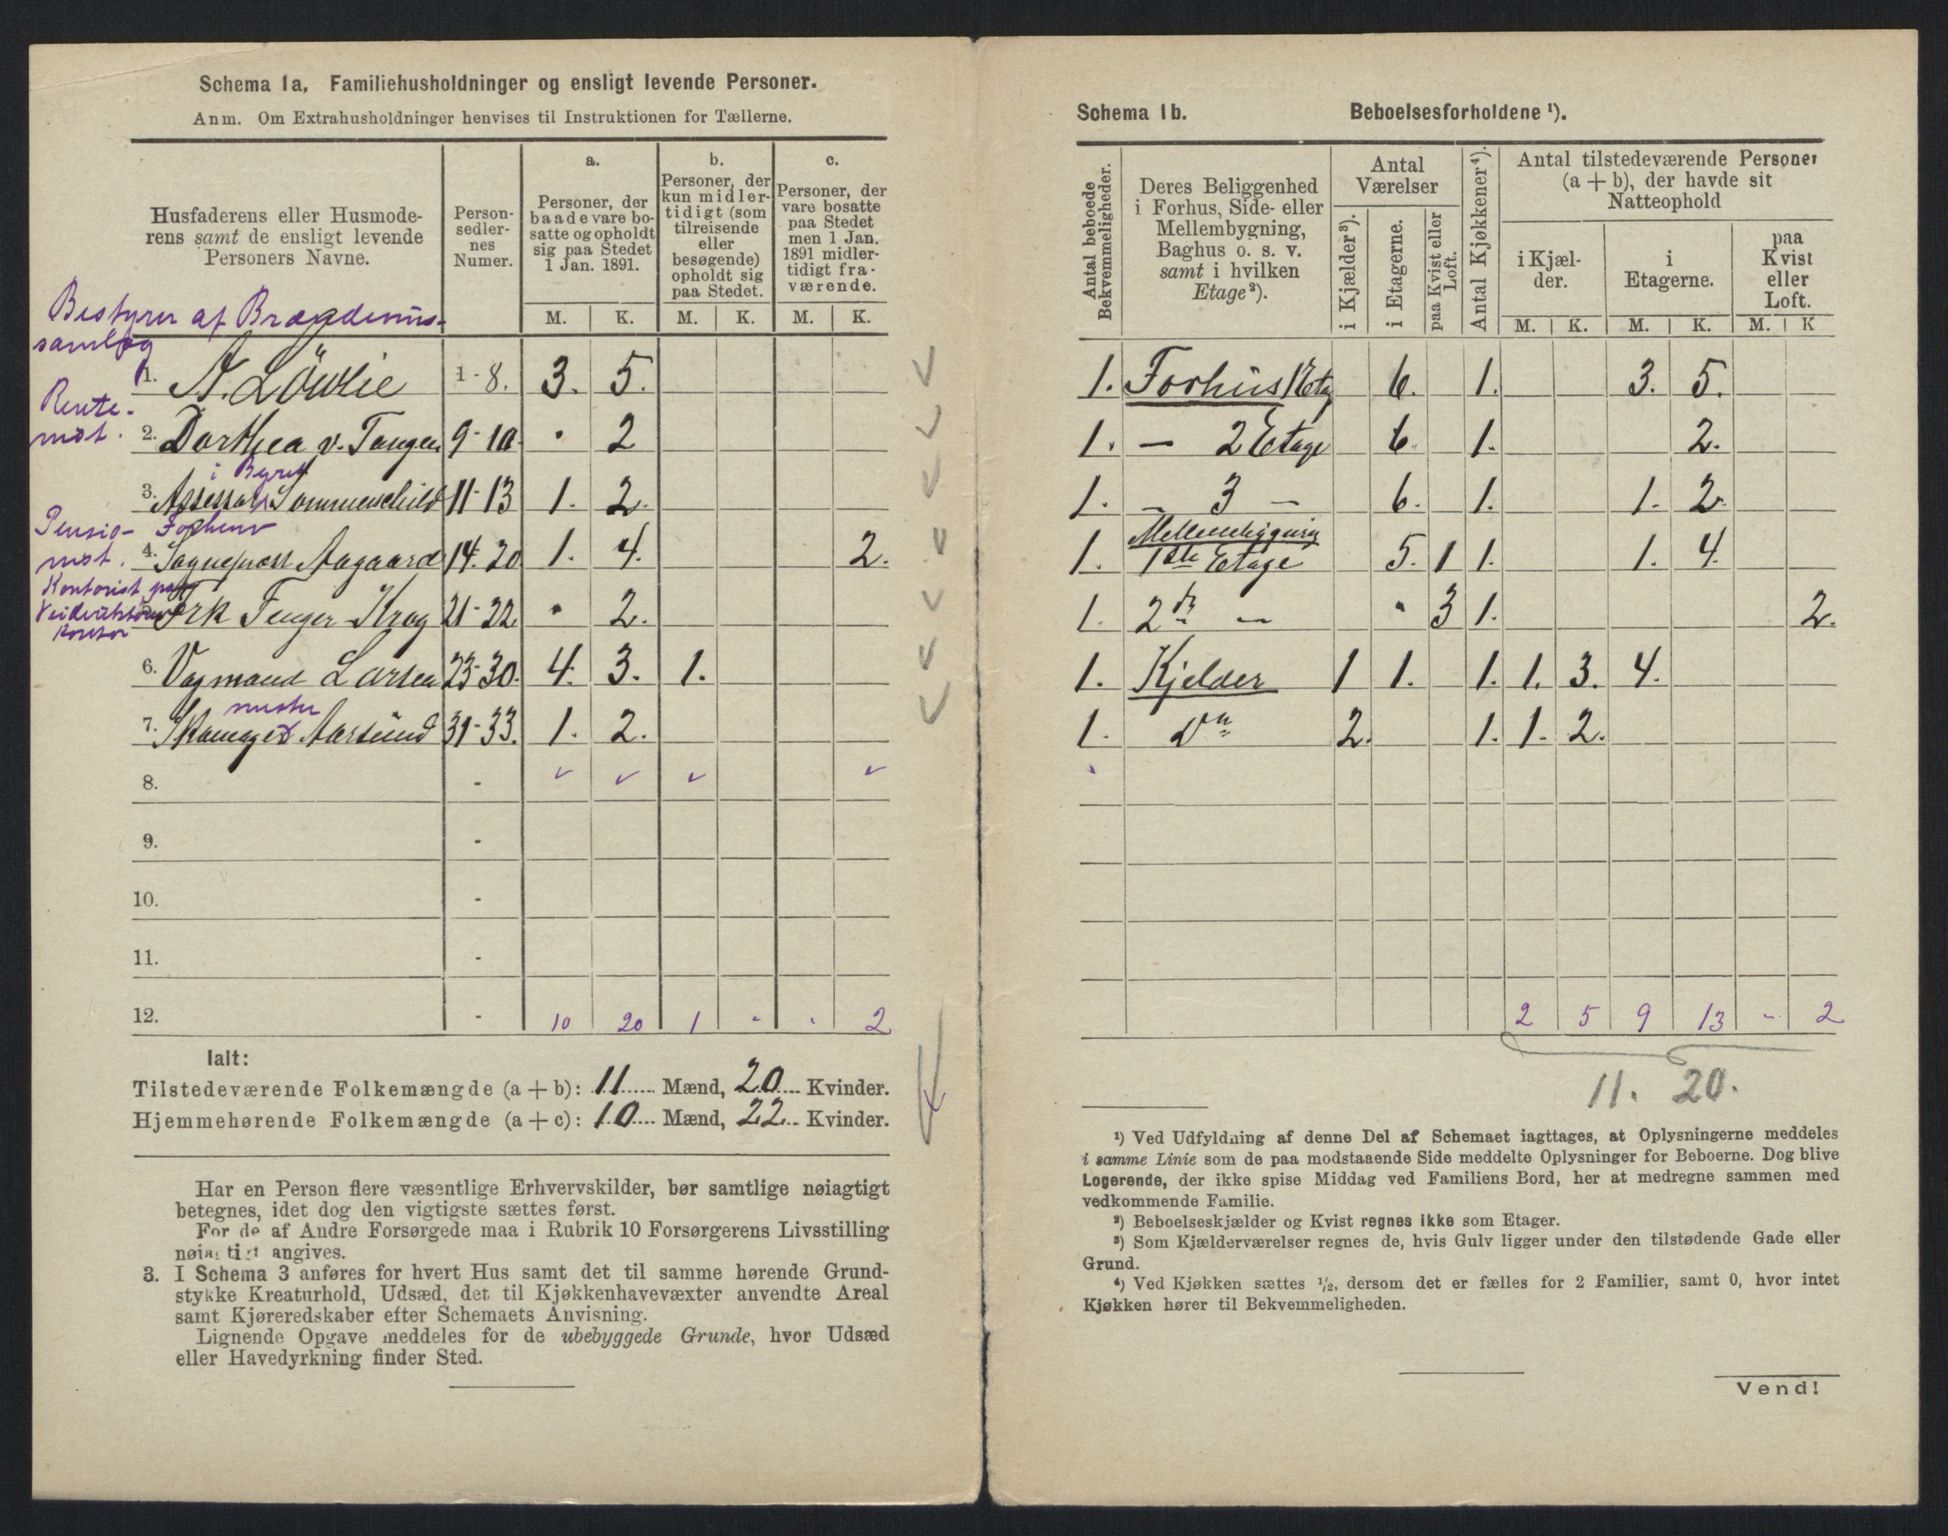 Schema 1a, Familiehusholdninger og ensligt levende Personer.
Anm. Om Extrahusholdninger henvises til Instruktionen for Tællerne.
Husfaderens eller Husmode-
rens samt de ensligt levende
Personers Navne.
Person-
sedler-
nes
Numer.
a.
Personer, der
baade vare bo-
satte og opholdt
sig paa Stedet
1 Jan. 1891.
b.
Personer, der
kun midler-
tidigt (som
tilreisende
eller
besøgende)
opholdt sig
paa Stedet.
c.
Personer, der
vare bosatte
paa Stedet
men 1 Jan.
1891 midler-
tidigt fra-
værende.
M. K. M. K. M. K.
Bestyrer af
1. A. Lövlie 1-8. 3. 5.
Rente-
2. Dorthea v. Tangen 9-10. • 2
i Byret
3. Assessor Sommerschild 11-13 1. 2.
Pensio-
4. Sogneprest Aagaard 14-20 1. 4. 2.
Kontorist paa
Frk Fenger Krog 21-22. • 2.
Kontor
6. Vogmand Larsen 23-30. 4. 3. 1.
mester
7. Skomager Aarsund 31-33. 1. 2.
8. -
9. -
10. -
11. -
12. - 10 20 1 - - 2
Ialt:
Tilstedeværende Folkemængde (a + b): 11 Mænd, 20 Kvinder.
Hjemmehørende Folkemængde (a + c): 10 Mænd, 22 Kvinder.
Har en Person flere væsentlige Erhvervskilder, bør samtlige nøiagtigt
betegnes, idet dog den vigtigste sættes først.
For de af Andre Forsørgede maa i Rubrik 10 Forsørgerens Livsstilling
nøiagtigt angives.
3. I Schema 3 anføres for hvert Hus samt det til samme hørende Grund-
stykke Kreaturhold, Udsæd, det til Kjøkkenhavevæxter anvendte Areal
samt Kjøreredskaber efter Schemaets Anvisning.
Lignende Opgave meddeles for de ubebyggede Grunde, hvor Udsæd
eller Havedyrkning finder Sted.
Schema 1b. Beboelsesforholdene ¹).
Antal beboede
Bekvemmeligheder.
Deres Beliggenhed
i Forhus, Side- eller
Mellembygning,
Baghus o. s. v.
samt i hvilken
Etage²).
Antal
Værelser
i Kjælder³).
i Etagerne.
paa Kvist eller
Loft.
Antal Kjøkkener⁴).
Antal tilstedeværende Personer
(a + b), der havde sit
Natteophold
i Kjæl-
der.
i
Etagerne.
paa
Kvist
eller
Loft.
M. K. M. K. M. K
1. Forhus 1 Etg 6. 1. 3. 5.
1. — 2 Etage 6. 1. 2.
1. — 3 — 6. 1. 1. 2.
Mellembygning
1. 1ste Etage 5. 1 1. 1. 4.
1. 2d — • 3 1. 2.
1. Kjelder 1 1. 1. 1. 3. 4.
1. Do 2. 1. 1. 2.
2 5 9 13 - 2
11. 20.
¹) Ved Udfyldning af denne Del af Schemaet iagttages, at Oplysningerne meddeles
i samme Linie som de paa modstaaende Side meddelte Oplysninger for Beboerne. Dog blive
Logerende, der ikke spise Middag ved Familiens Bord, her at medregne sammen med
vedkommende Familie.
²) Beboelseskjælder og Kvist regnes ikke som Etager.
³) Som Kjælderværelser regnes de, hvis Gulv ligger under den tilstødende Gade eller
Grund.
⁴) Ved Kjøkken sættes ¹/₂, dersom det er fælles for 2 Familier, samt 0, hvor intet
Kjøkken hører til Bekvemmeligheden.
Vend!